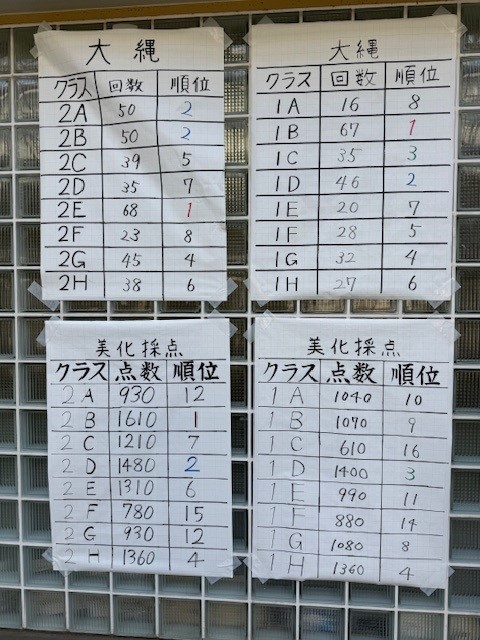 大縄
クラス 回数 順位
2A 50 2
2B 50 2
2C 39 5
2D 35 7
2E 68 1
2F 23 8
2G 45 4
2H 38 6
大縄
クラス 回数 順位
1A 16 8
1B 67 1
1C 35 3
1D 46 2
1E 20 7
1F 28 5
1G 32 4
1H 27 6
美化採点
クラス 点数 順位
2A 930 12
2B 1610 1
2C 1210 7
2D 1480 2
2E 1310 6
2F 780 15
2G 930 12
2H 1360 4
美化採点
クラス 点数 順位
1A 1040 10
1B 1070 9
1C 610 16
1D 1400 3
1E 990 11
1F 880 14
1G 1080 8
1H 1360 4